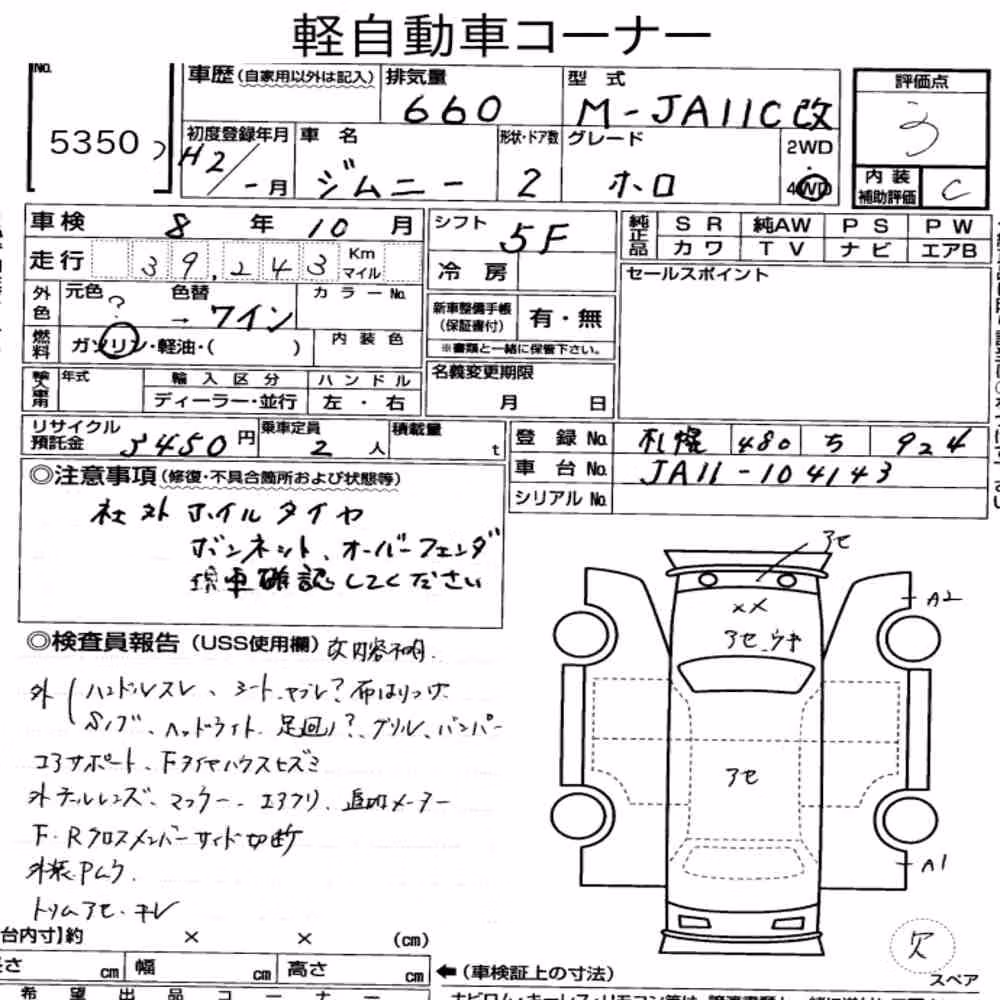 軽自動車コーナー
No. 車歴(自家用以外は記入) 排気量 型式 評価点
5350 660 M-JA11C改 3
初度登録年月 車名 形状・ドア数 グレード 2WD・4WD
H2/-月 ジムニー 2 ホロ 内装補助評価 C
車検 8年10月 シフト 5F 純正品 SR 純AW PS PW
カワ TV ナビ エアB
走行 39,243 Km マイル 冷房 セールスポイント
外色 元色 ? 色替 → ワイン カラーNo. 新車整備手帳(保証書付) 有・無
燃料 ガソリン・軽油・( ) 内装色 ※書類と一緒に保管下さい。
輸入車用 年式 輸入区分 ハンドル 名義変更期限
ディーラー・並行 左・右 月 日
リサイクル預託金 円 乗車定員 2人 積載量 t 登録No. 札幌 480 ち 924
5450
車台No. JA11-104143
シリアルNo.
◎注意事項(修復・不具合箇所および状態等)
社外ホイルタイヤ
ボンネット、オーバーフェンダ
現車確認してください
アセ
A2
××
アセ ウキ
アセ
A1
◎検査員報告(USS使用欄) 改内容不明.
外 ハンドルスレ、シートヤブレ?布はりつけ
ヘッドライト、足回り?、グリル、バンパー
コアサポート、Fタイヤハウスヒズミ
外テールレンズ、マフラー、エアクリ、追加メーター
F・Rクロスメンバーサイド切断
外装Pムラ.
トリムアセ・キレ
台内寸】約 × × (cm)
cm 幅 cm 高さ cm ←(車検証上の寸法)
欠
スペア
希望出品コーナー